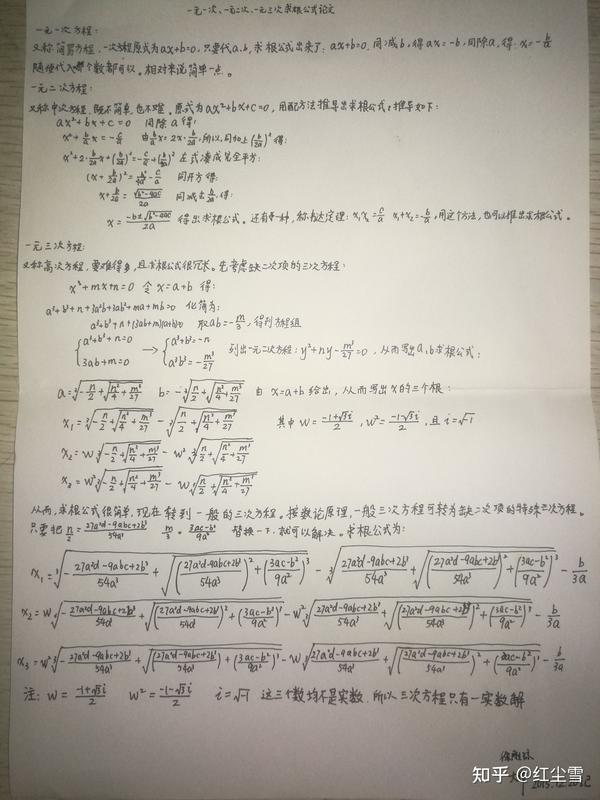 一元一次、一元二次、一元三次求根公式论文
一元一次方程:
又称简易方程,一次方程原式为ax+b=0,只要代a、b,求根公式出来了:ax+b=0,同减b,得ax=-b,同除a,得:x=-b/a
随便代入哪个数都可以。相对来说简单一点。
一元二次方程:
又称中次方程,既不简单,也不难。原式为ax²+bx+c=0,用配方法推导出求根公式:推导如下:
ax²+bx+c=0 同除a得:
x²+b/a x=-c/a 由b/a x=2x·b/2a,所以,同加上(b/2a)²得:
x²+2·b/2a x+(b/2a)²=-c/a+(b/2a)² 左式凑成完全平方:
(x+b/2a)²=b²/4a²-c/a 同开方得:
x+b/2a=√(b²-4ac)/2a 同减去b/2a,得:
x=(-b±√(b²-4ac))/2a 得出求根公式。还有另一种,称韦达定理:x₁x₂=c/a x₁+x₂=-b/a,用这个方法,也可以推出求根公式。
一元三次方程:
又称高次方程,要难得多,且求根公式很冗长。先考虑缺二次项的三次方程:
x³+mx+n=0 令x=a+b 得:
a³+b³+n+3a²b+3ab²+ma+mb=0 化简为:
a³+b³+n+(3ab+m)(a+b)=0 取ab=-m/3,得到方程组
{a³+b³+n=0 3ab+m=0 → {a³+b³=-n a³b³=-m³/27 列出一元二次方程:y²+ny-m³/27=0,从而写出a、b求根公式:
a=∛(-n/2+√(n²/4+m³/27)) b=-∛(n/2+√(n²/4+m³/27)) 由x=a+b给出,从而写出x的三个根:
x₁=∛(-n/2+√(n²/4+m³/27))-∛(n/2+√(n²/4+m³/27)) 其中w=(-1+√3i)/2,w²=(-1-√3i)/2,且i=√-1
x₂=w∛(-n/2+√(n²/4+m³/27))-w²∛(n/2+√(n²/4+m³/27))
x₃=w²∛(-n/2+√(n²/4+m³/27))-w∛(n/2+√(n²/4+m³/27))
从而,求根公式很简单,现在转到一般的三次方程。据数论原理,一般三次方程可转为缺二次项的特殊三次方程。
只要把n/2=(27a²d-9abc+2b³)/54a³ m/3=(3ac-b²)/9a² 替换一下,就可以解决。求根公式为:
x₁=∛(-(27a²d-9abc+2b³)/54a³+√(((27a²d-9abc+2b³)/54a³)²+((3ac-b²)/9a²)³))-∛((27a²d-9abc+2b³)/54a³+√(((27a²d-9abc+2b³)/54a³)²+((3ac-b²)/9a²)³))-b/3a
x₂=w∛(-(27a²d-9abc+2b³)/54a³+√(((27a²d-9abc+2b³)/54a³)²+((3ac-b²)/9a²)³))-w²∛((27a²d-9abc+2b³)/54a³+√(((27a²d-9abc+2b³)/54a³)²+((3ac-b²)/9a²)³))-b/3a
x₃=w²∛(-(27a²d-9abc+2b³)/54a³+√(((27a²d-9abc+2b³)/54a³)²+((3ac-b²)/9a²)³))-w∛((27a²d-9abc+2b³)/54a³+√(((27a²d-9abc+2b³)/54a³)²+((3ac-b²)/9a²)³))-b/3a
注:w=(-1+√3i)/2 w²=(-1-√3i)/2 i=√-1 这三个数均不是实数,所以三次方程只有一实数解
知乎 @红尘雪
2015.12.20记